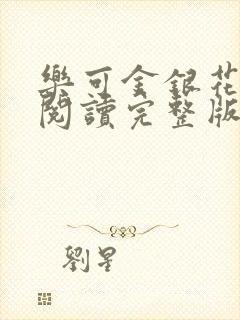 樂可金銀花
閱讀完整版
劉星